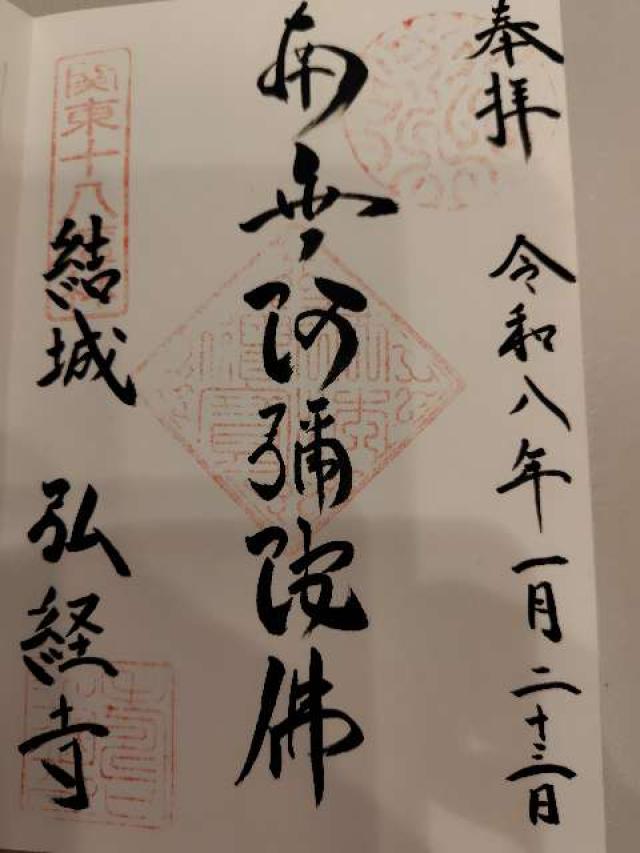 奉拝
令和八年一月二十三日
南無阿彌陀佛
関東十八
結城 弘経寺